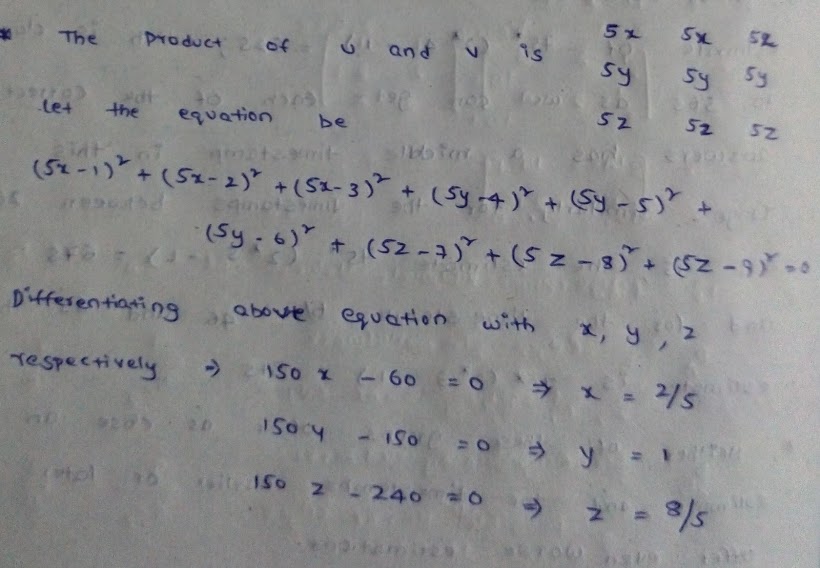 * The product of u and v is 5x 5x 5x
5y 5y 5y
Let the equation be 5z 5z 5z
(5x-1)² + (5x-2)² + (5x-3)² + (5y-4)² + (5y-5)² +
(5y-6)² + (5z-7)² + (5z-8)² + (5z-9)² = 0
Differentiating above equation with x, y, z
respectively ⇒ 150x - 60 = 0 ⇒ x = 2/5
150y - 150 = 0 ⇒ y = 1
150z - 240 = 0 ⇒ z = 8/5